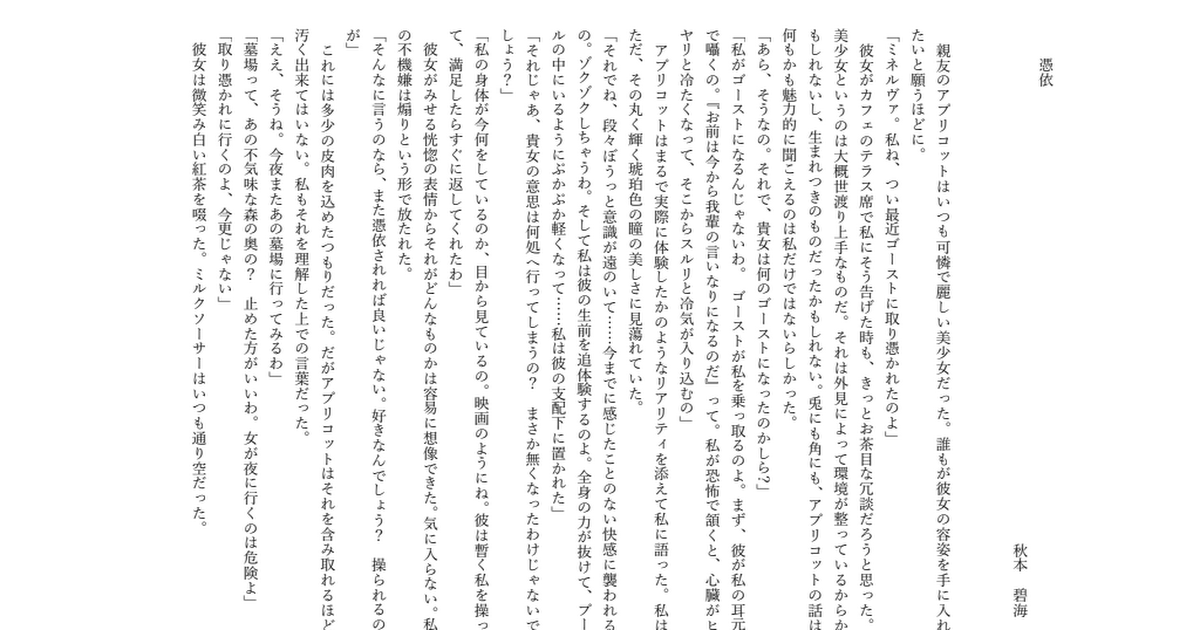 憑依
秋本　碧海
　親友のアプリコットはいつも可憐で麗しい美少女だった。誰もが彼女の容姿を手に入れ
たいと願うほどに。
「ミネルヴァ。私ね、つい最近ゴーストに取り憑かれたのよ」
　彼女がカフェのテラス席で私にそう告げた時も、きっとお茶目な冗談だろうと思った。
美少女というのは大概世渡り上手なものだ。それは外見によって環境が整っているからか
もしれないし、生まれつきのものだったかもしれない。兎にも角にも、アプリコットの話は
何もかも魅力的に聞こえるのは私だけではないらしかった。
「あら、そうなの。それで、貴女は何のゴーストになったのかしら?」
「私がゴーストになるんじゃないわ。　ゴーストが私を乗っ取るのよ。まず、彼が私の耳元
で囁くの。『お前は今から我輩の言いなりになるのだ』って。私が恐怖で頷くと、心臓がヒ
ヤリと冷たくなって、そこからスルリと冷気が入り込むの」
　アプリコットはまるで実際に体験したかのようなリアリティを添えて私に語った。私は
ただ、その丸く輝く琥珀色の瞳の美しさに見蕩れていた。
「それでね、段々ぼうっと意識が遠のいて……今までに感じたことのない快感に襲われる
の。ゾクゾクしちゃうわ。そして私は彼の生前を追体験するのよ。全身の力が抜けて、プー
ルの中にいるようにぷかぷか軽くなって……私は彼の支配下に置かれた」
「それじゃあ、貴女の意思は何処へ行ってしまうの？　まさか無くなったわけじゃないで
しょう？」
「私の身体が今何をしているのか、目から見ているの。映画のようにね。彼は暫く私を操っ
て、満足したらすぐに返してくれたわ」
　彼女がみせる恍惚の表情からそれがどんなものかは容易に想像できた。気に入らない。私
の不機嫌は煽りという形で放たれた。
「そんなに言うのなら、また憑依されれば良いじゃない。好きなんでしょう？　操られるの
が」
　これには多少の皮肉を込めたつもりだった。だがアプリコットはそれを含み取れるほど
汚く出来てはいない。私もそれを理解した上での言葉だった。
「ええ、そうね。今夜またあの墓場に行ってみるわ」
「墓場って、あの不気味な森の奥の？　止めた方がいいわ。女が夜に行くのは危険よ」
「取り憑かれに行くのよ、今更じゃない」
　彼女は微笑み白い紅茶を啜った。ミルクソーサーはいつも通り空だった。